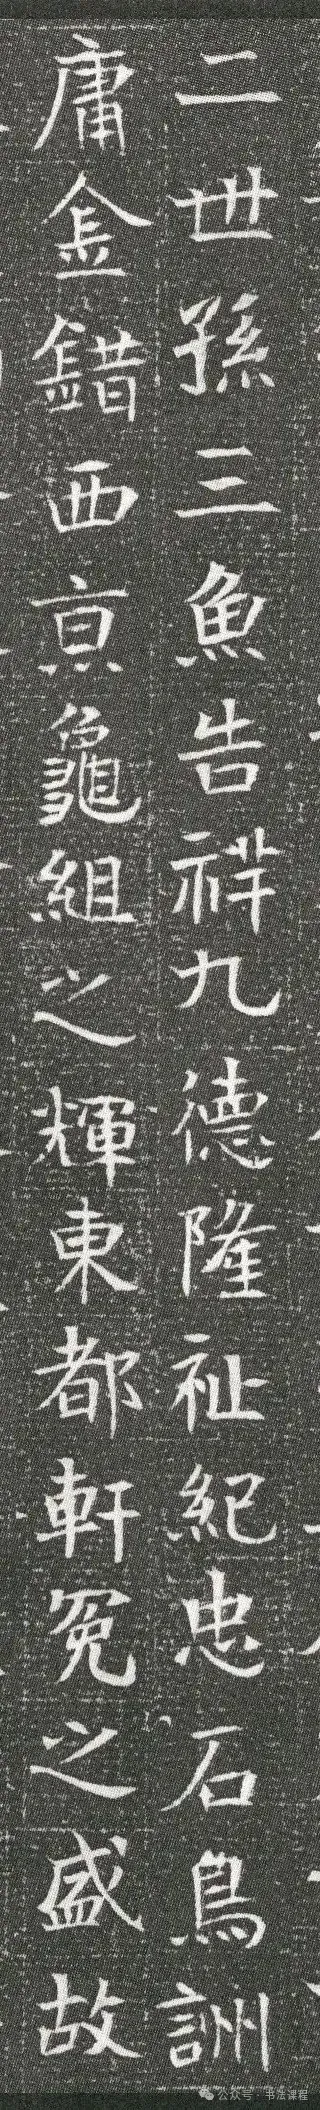 二世孫三魚告祥九德隆祉紀忠石鳥詶
庸金錯西亰龜組之輝東都軒冕之盛故
公众号：书法课程